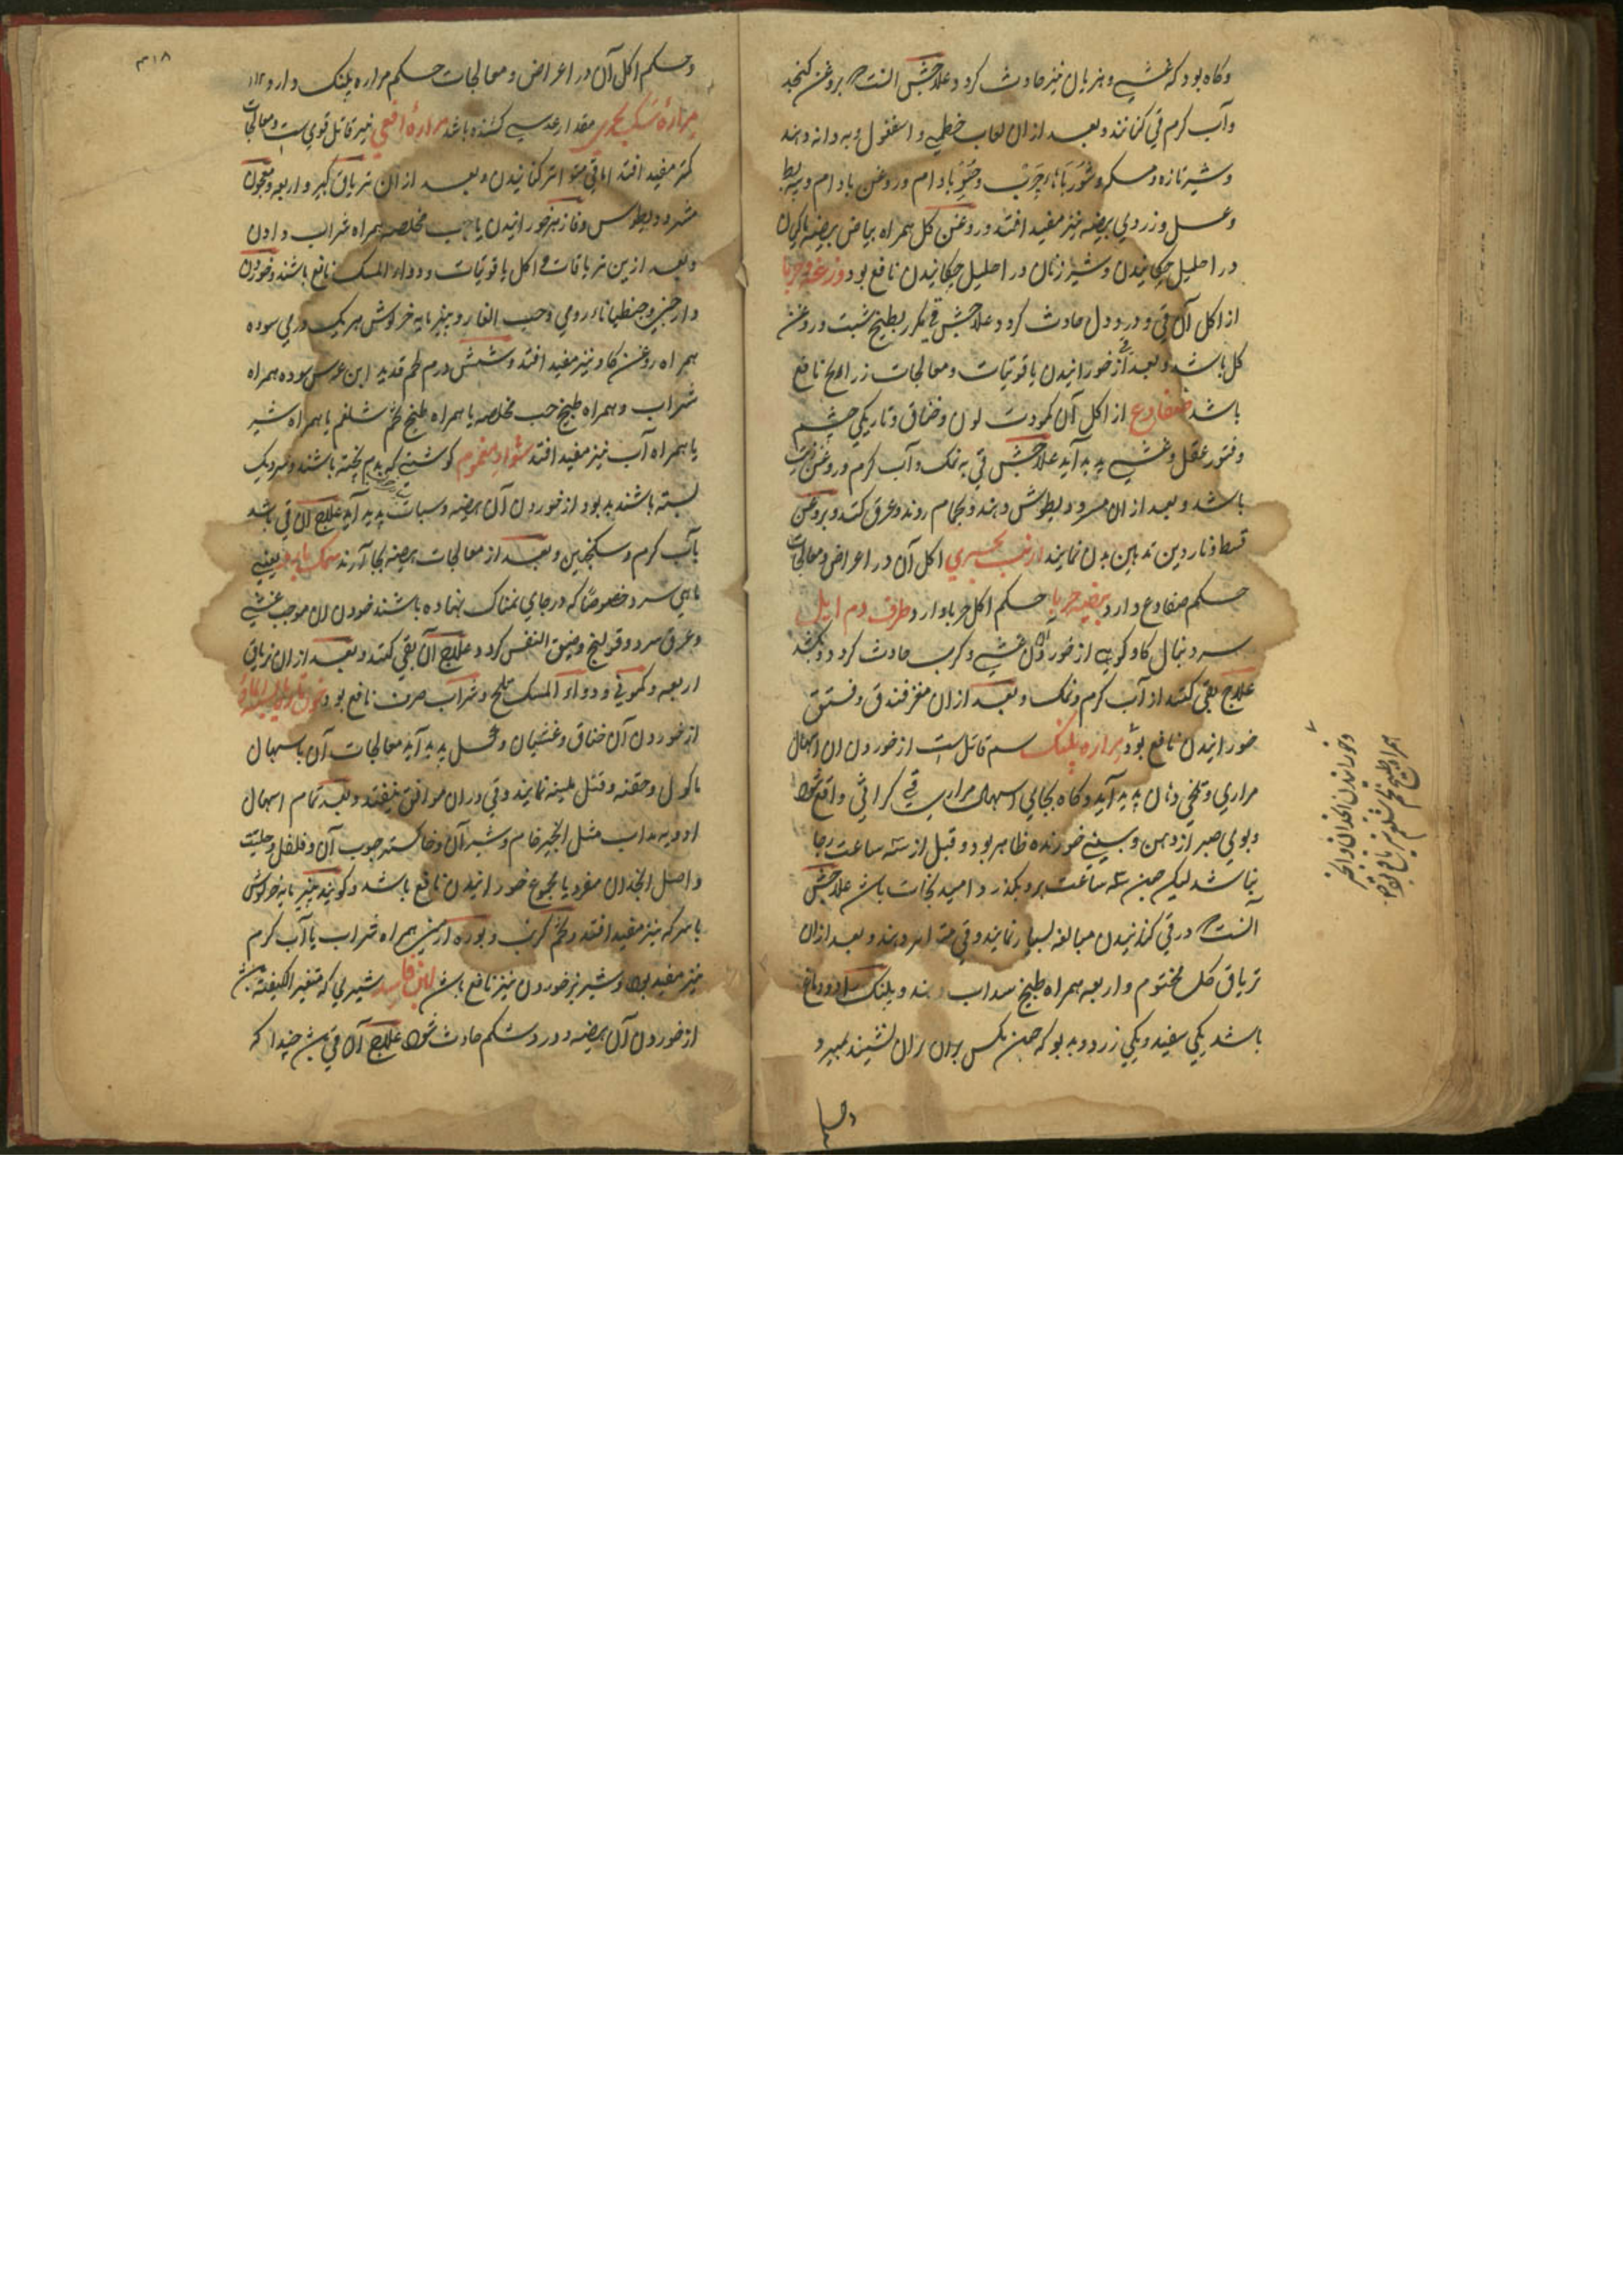 وکاه بود که غشی و هزیان نیز حادث کردد علاجش آنست که بروغن کنجد
وآب کرم قی کنانند و بعد از ان لعاب خطمی و اسفغول و به دانه دهند
وشیر تازه ومسکه وشوربا چرب و حریره بادام و روغن بادام و پیه بط
وعسل و زردی بیضه نیز مفید افتد و روغن کل همراه بیاض بیضه
در احلیل چکانیدن وشیر زنان در احلیل چکانیدن نافع بود وزغه وحربا
از اکل آن قی و درد دل حادث کردد علاجش قی مکرر بطبیخ شبت و روغن
کل باشد و بعد از قی خورانیدن یاقوتیات ومعالجات زراریح نافع
باشد ضفادع از اکل آن کمودت لون وخناق وتاریکی چشم
وفتور عقل وغشی پدید آید علاجش قی به نمک وآب کرم و روغن زیت
باشد و بعد از ان مسرودیطوس دهند و بحمام روند وعرق کنند و بروغن
قسط و ناردین تدهین بدن نمایند ارنب بحری اکل آن در اعراض ومعالجات
حکم ضفادع دارد بیضه حربا حکم اکل حربا دارد طرف دم ایل
سر دنبال کاو کوهی از خوردن آن غشی وکرب حادث کردد و بکشد
علاج بقی کنند از آب کرم ونمک و بعد از ان مغز فندق و فستق
خورانیدن نافع بود مراره پلنک سم قاتل است از خوردن ان اسهال
مراری و تلخی دهان پدید آید وکاه بجای اسهال مراری قی کراثی واقع شود
وبوی صبر از دهن و بینی خورنده ظاهر بود و قبل از سه ساعت رجا
نباشد لیکن چون سه ساعت برو بکذرد امید نجات باشد علاجش
آنست که در قی کنانیدن مبالغه بسیار نمایند وقی متواتر دهند و بعد از ان
تریاق کل مختوم و اربعه همراه طبیخ سداب دهند و پلنک را دو دماغ
باشد یکی سفید ویکی زرد و بدبو که چون مکس بران زان نشیند بمیرد
وخورانیدن انجدان و انجیر
همراه طبیخ تخم شلغم نیز نافع بود
۳۱۸
وحکم اکل آن در اعراض ومعالجات حکم مراره پلنک دارد
مراره سک بحری مقدار عدسی کشنده باشد مراره افعی نیز قاتل قوی ست ومعالجات
کمتر مفید افتد اما قی متواتر کنانیدن و بعد از ان تریاق کبیر و اربعه ومعجون
مثرودیطوس و فادزهر خورانیدن یا حب مخلصه همراه شراب دادن
وبعد ازین تریاقات اکل یاقوتیات و دواء المسک نافع باشند وخوردن
دارچینی و جنطیانای رومی وحب الغار و پنیر مایه خرکوش هریک درمی سوده
همراه روغن کاو نیز مفید افتد وشش درم لحم قدید ابن عرس سوده همراه
شراب و همراه طبیخ حب مخلصه یا همراه طبیخ تخم شلغم یا همراه شیر
یا همراه آب نیز مفید افتد شواء مغموم کوشتی که پخته باشند و سر دیک
بسته باشند بد بود از خوردن آن هیضه وسبات پدید آید علاج آن قی باشد
بآب کرم وسکنجبین و بعد از معالجات هیضه بجا آرند سمک بارد یعنی
ماهی سرد خصوصا که در جای نمناک نهاده باشند خوردن ان موجب غشی
وعرق سرد و قولنج وضیق النفس کردد علاج آن بقی کنند و بعد از ان تریاق
اربعه وکمونی و دواء المسک تلخ وشراب صرف نافع بود
از خوردن آن خناق وغشیان و پدید آید معالجات آن باسهال
ماکول وحقنه وفتل ملینه نمایند وقی دران موافق نیفتد و بعد تمام اسهال
ادویه مثل انجیر خام وشیر آن وخاکستر چوب آن وفلفل وحلتیت
واصل انجدان مفرد یا مجموع خورانیدن نافع باشد وکویند پنیر مایه خرکوش
با سرکه نیز مفید افتد وتخم کرنب و بوره ارمنی همراه شراب یا آب کرم
نیز مفید بود وشیر بز خوردن نیز نافع باشد لبن فاسد شیری که متغیر الکیفیت باشد
از خوردن آن هیضه و درد شکم حادث شود علاج آن قی چندانکه